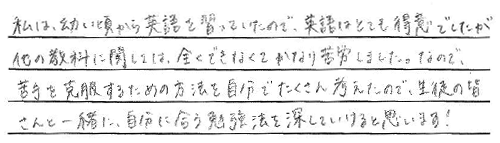 私は、幼い頃から英語を習っていたので、英語はとても得意でしたが
他の教科に関しては、全くできなくてかなり苦労しました。なので、
苦手を克服するための方法を自分でたくさん考えたので、生徒の皆
さんと一緒に、自分に合う勉強法を探していけると思います!